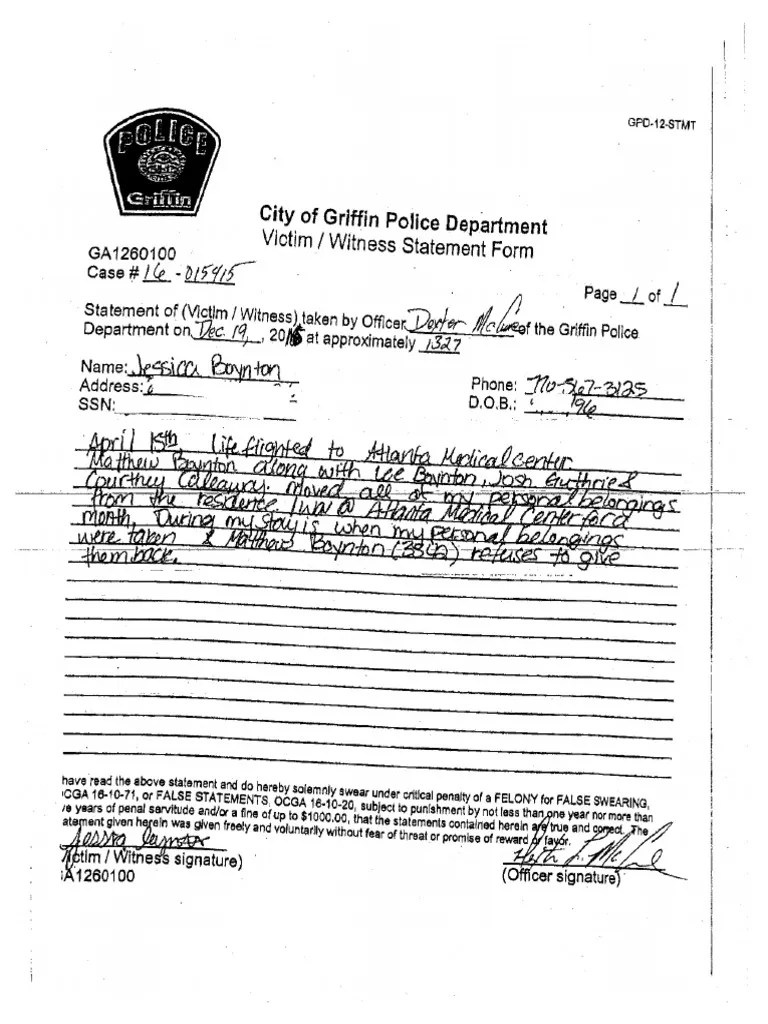 GPD-12-STMT
POLICE
Griffin
City of Griffin Police Department
Victim / Witness Statement Form
GA1260100
Case # 16 - 015415
Page 1 of 1
Statement of (Victim / Witness) taken by Officer Dexter of the Griffin Police
Department on Dec. 19, 20 at approximately 1327
Name: Jessica Boynton
Address:
Phone: 770-567-3125
SSN:
D.O.B.: 96
April 15th Life flighted to Atlanta Medical center
Matthew Boynton along with Lee Boynton, Josh Guthrie &
Courtney Calleaway. Moved all of my personal belongings
from the residence. I wa @ Atlanta Medical Center for a
month, During my stay is when my personal belongings
were taken & Matthew Boynton (3842) refuses to give
them back.
have read the above statement and do hereby solemnly swear under critical penalty of a FELONY for FALSE SWEARING,
OCGA 16-10-71, or FALSE STATEMENTS, OCGA 16-10-20, subject to punishment by not less than one year nor more than
ve years of penal servitude and/or a fine of up to $1000.00, that the statements contained herein are true and correct. The
atement given herein was given freely and voluntarily without fear of threat or promise of reward or favor.
(Victim / Witness signature)
(Officer signature)
GA1260100